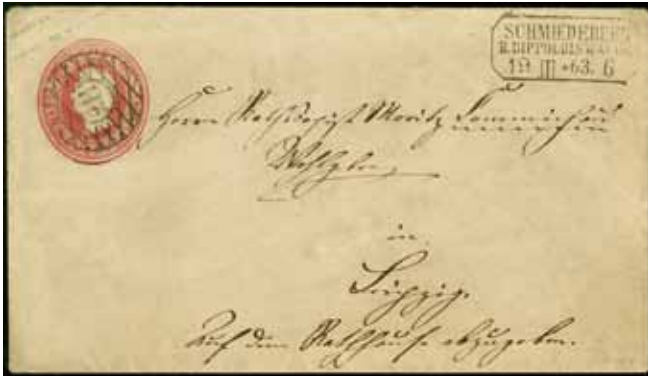 SCHMIEDEBERG
B. DIPPOLDISWALDE
19 III *63. 6
Herrn Moritz
Wohlgeb.
in
Leipzig.
Auf dem Rathhause abzugeben.